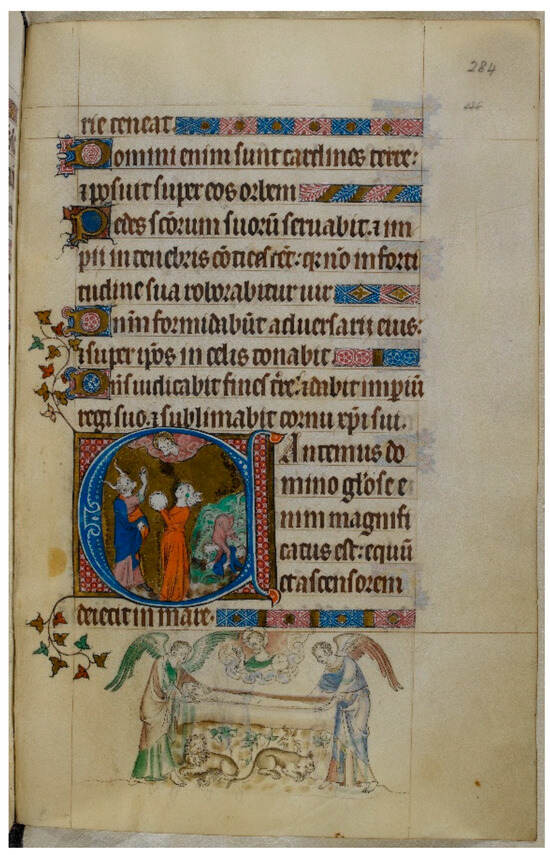 284
rie teneat.
Domini enim sunt cardines terre:
⁊ posuit super eos orbem
Pedes sc̄orum suorū seruabit. ⁊ im
pii in tenebris cōticescēt: qr nō in forti
tudine sua roborabitur uir
Dnm̄ formidabūt aduersarii eius:
⁊ super ip̄os in celis tonabit.
Dn̄s iudicabit fines tr̄e: ⁊ dabit imp̄iū
regi suo. ⁊ sublimabit cornu xp̄i sui.
Cantemus do
mino gl̄ose e
nim magnifi
catus est: equū
et ascensorem
deiecit in mare.